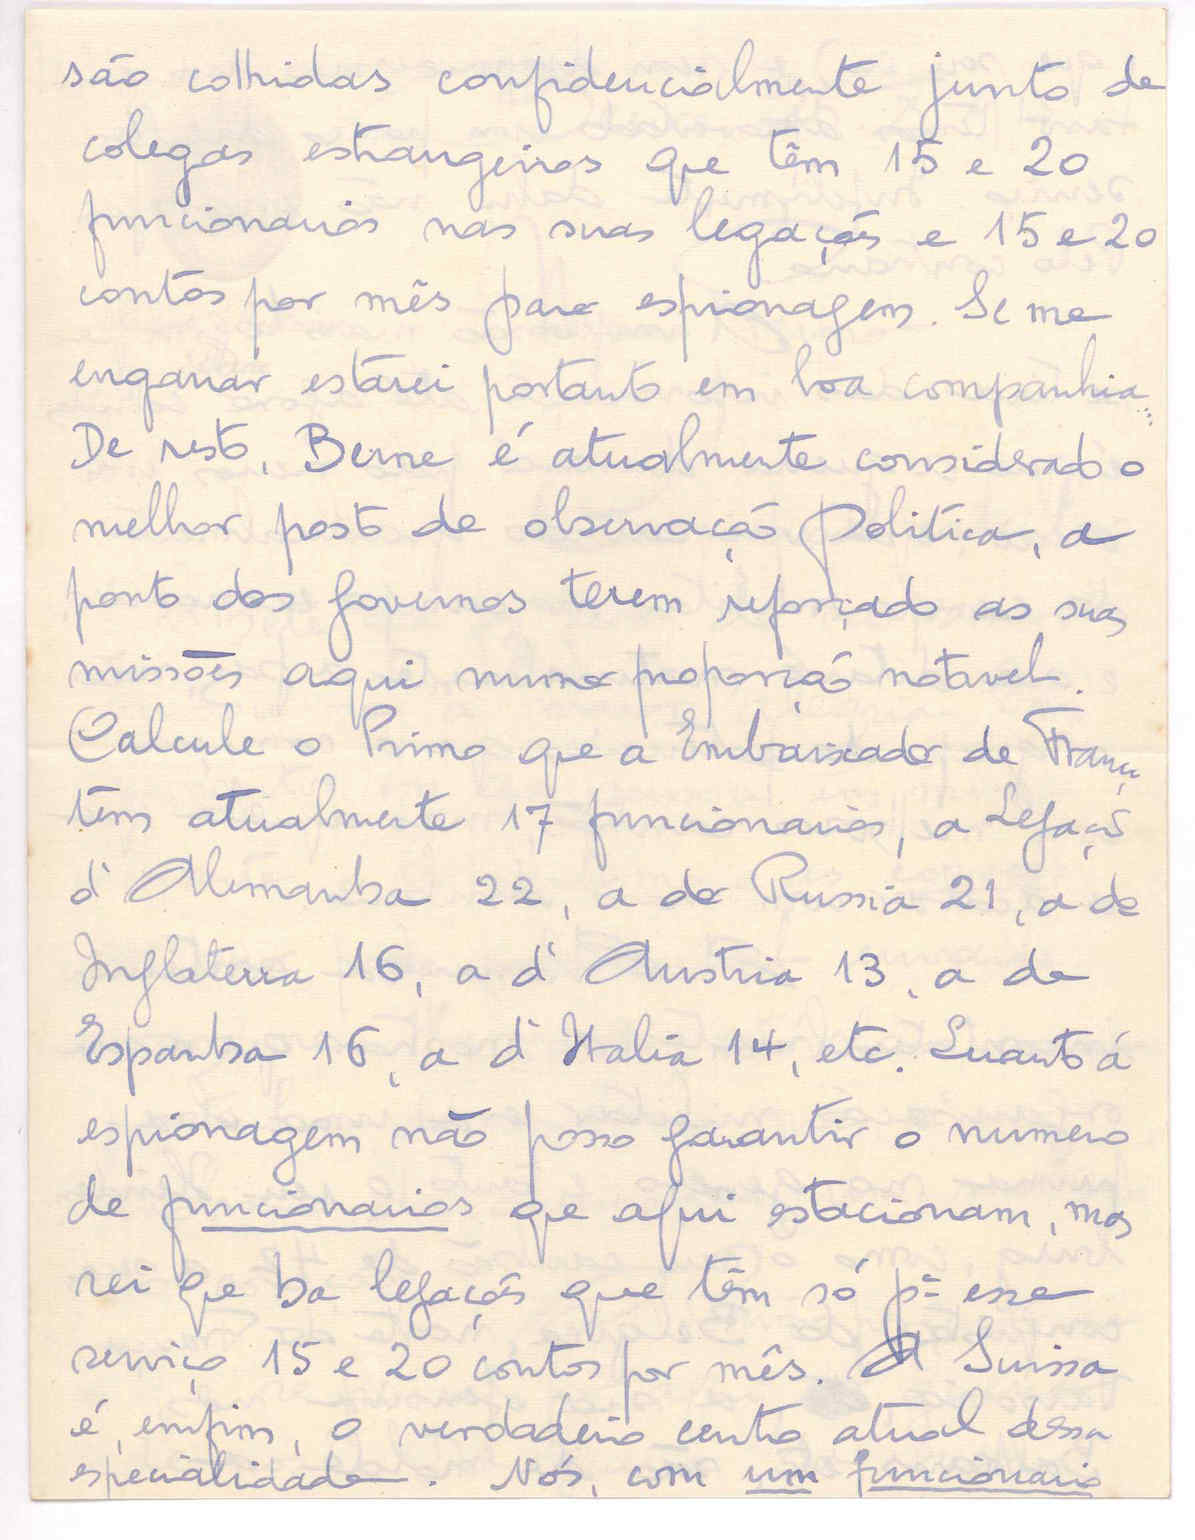 são colhidas confidencialmente junto de
colegas estrangeiros que têm 15 e 20
funcionarios nas suas legações e 15 e 20
contos por mês para espionagem. Se me
enganar estarei portanto em boa companhia...
De resto, Berne é atualmente considerado o
melhor posto de observação Politica, a
ponto dos governos terem reforçado as suas
missões aqui numa proporção notavel.
Calcule o Primo que a Embaixada de França
têm atualmente 17 funcionarios, a Legação
d'Alemanha 22, a da Russia 21, a de
Inglaterra 16, a d'Austria 13, a da
Espanha 16, a d'Italia 14, etc. Quanto á
espionagem não posso garantir o numero
de funcionarios que aqui estacionam, mas
sei que ha legações que têm só pª esse
serviço 15 e 20 contos por mês. A Suissa
é, emfim, o verdadeiro centro atual dessa
especialidade. Nós, com um funcionario